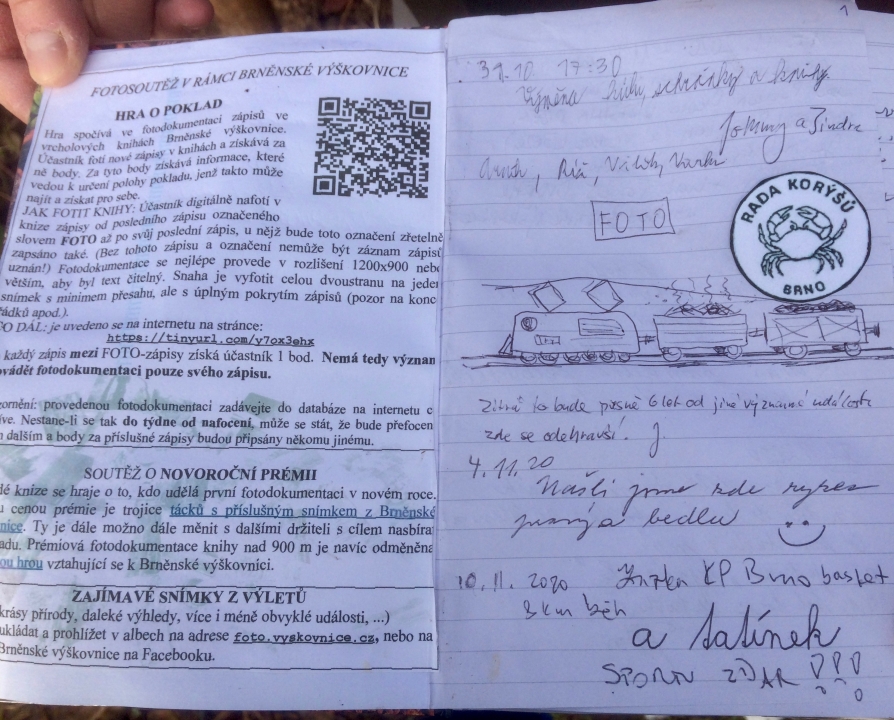 FOTOSOUTĚŽ V RÁMCI BRNĚNSKÉ VÝŠKOVNICE
HRA O POKLAD
Hra spočívá ve fotodokumentaci zápisů ve
vrcholových knihách Brněnské výškovnice.
Účastník fotí nové zápisy v knihách a získává za
ně body. Za tyto body získává informace, které
vedou k určení polohy pokladu, jenž takto může
najít a získat pro sebe.
JAK FOTIT KNIHY: Účastník digitálně nafotí v
knize zápisy od posledního zápisu označeného
slovem FOTO až po svůj poslední zápis, u nějž bude toto označení zřetelně
zapsáno také. (Bez tohoto zápisu a označení nemůže být záznam zápisů
uznán!) Fotodokumentace se nejlépe provede v rozlišení 1200x900 nebo
větším, aby byl text čitelný. Snaha je vyfotit celou dvoustranu na jeden
snímek s minimem přesahu, ale s úplným pokrytím zápisů (pozor na konc
řádků apod.).
CO DÁL: je uvedeno se na internetu na stránce:
https://tinyurl.com/y7ox3ehx
každý zápis mezi FOTO-zápisy získá účastník 1 bod. Nemá tedy význam
ovádět fotodokumentaci pouze svého zápisu.
zornění: provedenou fotodokumentaci zadávejte do databáze na internetu c
íve. Nestane-li se tak do týdne od nafocení, může se stát, že bude přefocen
dalším a body za příslušné zápisy budou připsány někomu jinému.
SOUTĚŽ O NOVOROČNÍ PRÉMII
dé knize se hraje o to, kdo udělá první fotodokumentaci v novém roce.
cenou prémie je trojice tácků s příslušným snímkem z Brněnské
nice. Ty je dále možno dále měnit s dalšími držiteli s cílem nasbíra
adu. Prémiová fotodokumentace knihy nad 900 m je navíc odměněna
ou hrou vztahující se k Brněnské výškovnici.
ZAJÍMAVÉ SNÍMKY Z VÝLETŮ
krásy přírody, daleké výhledy, více i méně obvyklé události, ...)
ukládat a prohlížet v albech na adrese foto.vyskovnice.cz, nebo na
Brněnské výškovnice na Facebooku.
1
31.10 17:30
Výměna schránky a knihy.
a Jindra
FOTO
RADA KORÝŠŮ
BRNO
Zítra to bude přesně 6 let od jiné významné události
zde se odehravší.
4.11.20
Našli jsme zde ryzec
pravý a bedlu
10.11.2020 KP Brno basket
8 km běh
a tatínek
SPORTU ZDAR !!!